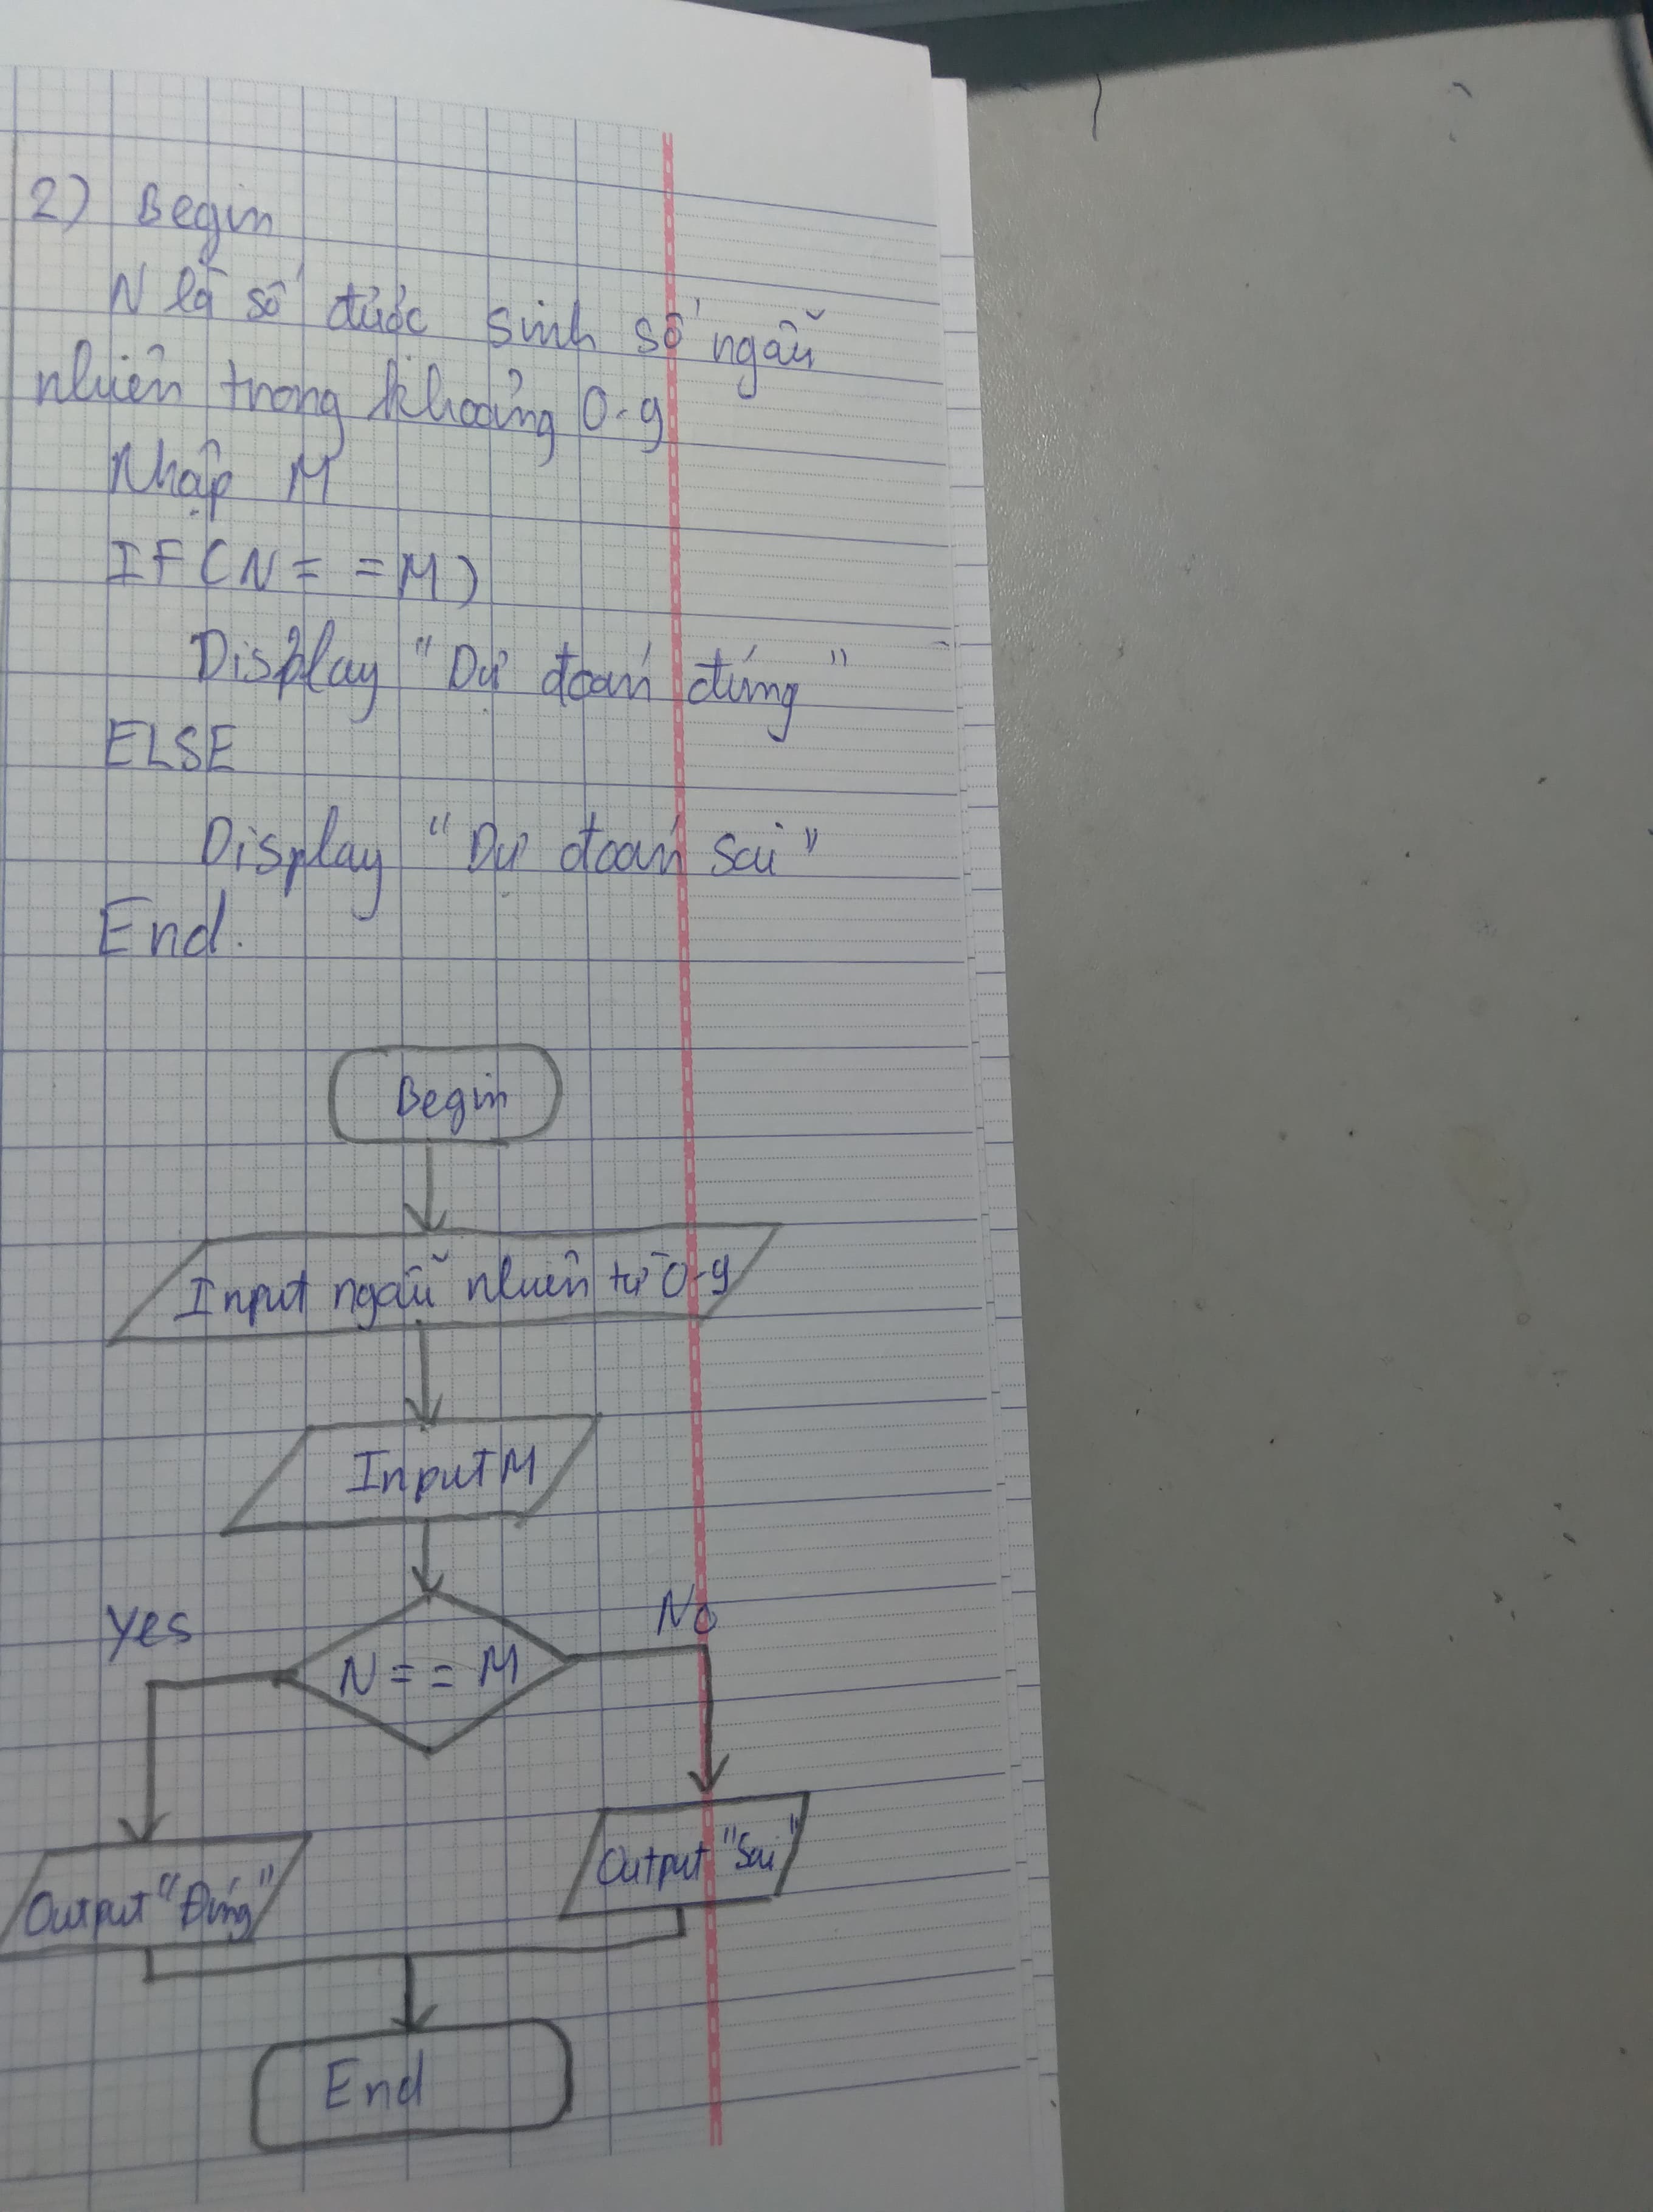 2) Begin
N là số được sinh số ngẫu
nhiên trong khoảng 0-9
Nhập M
IF(N==M)
Display "Dự đoán đúng"
ELSE
Display "Dự đoán sai"
End.
Begin
Input ngẫu nhiên từ 0-9
Input M
Yes
No
N==M
Output "Đúng"
Output "Sai"
End